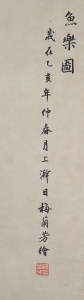 魚樂圖
歲在乙亥年仲春月上澣日梅蘭芳繪